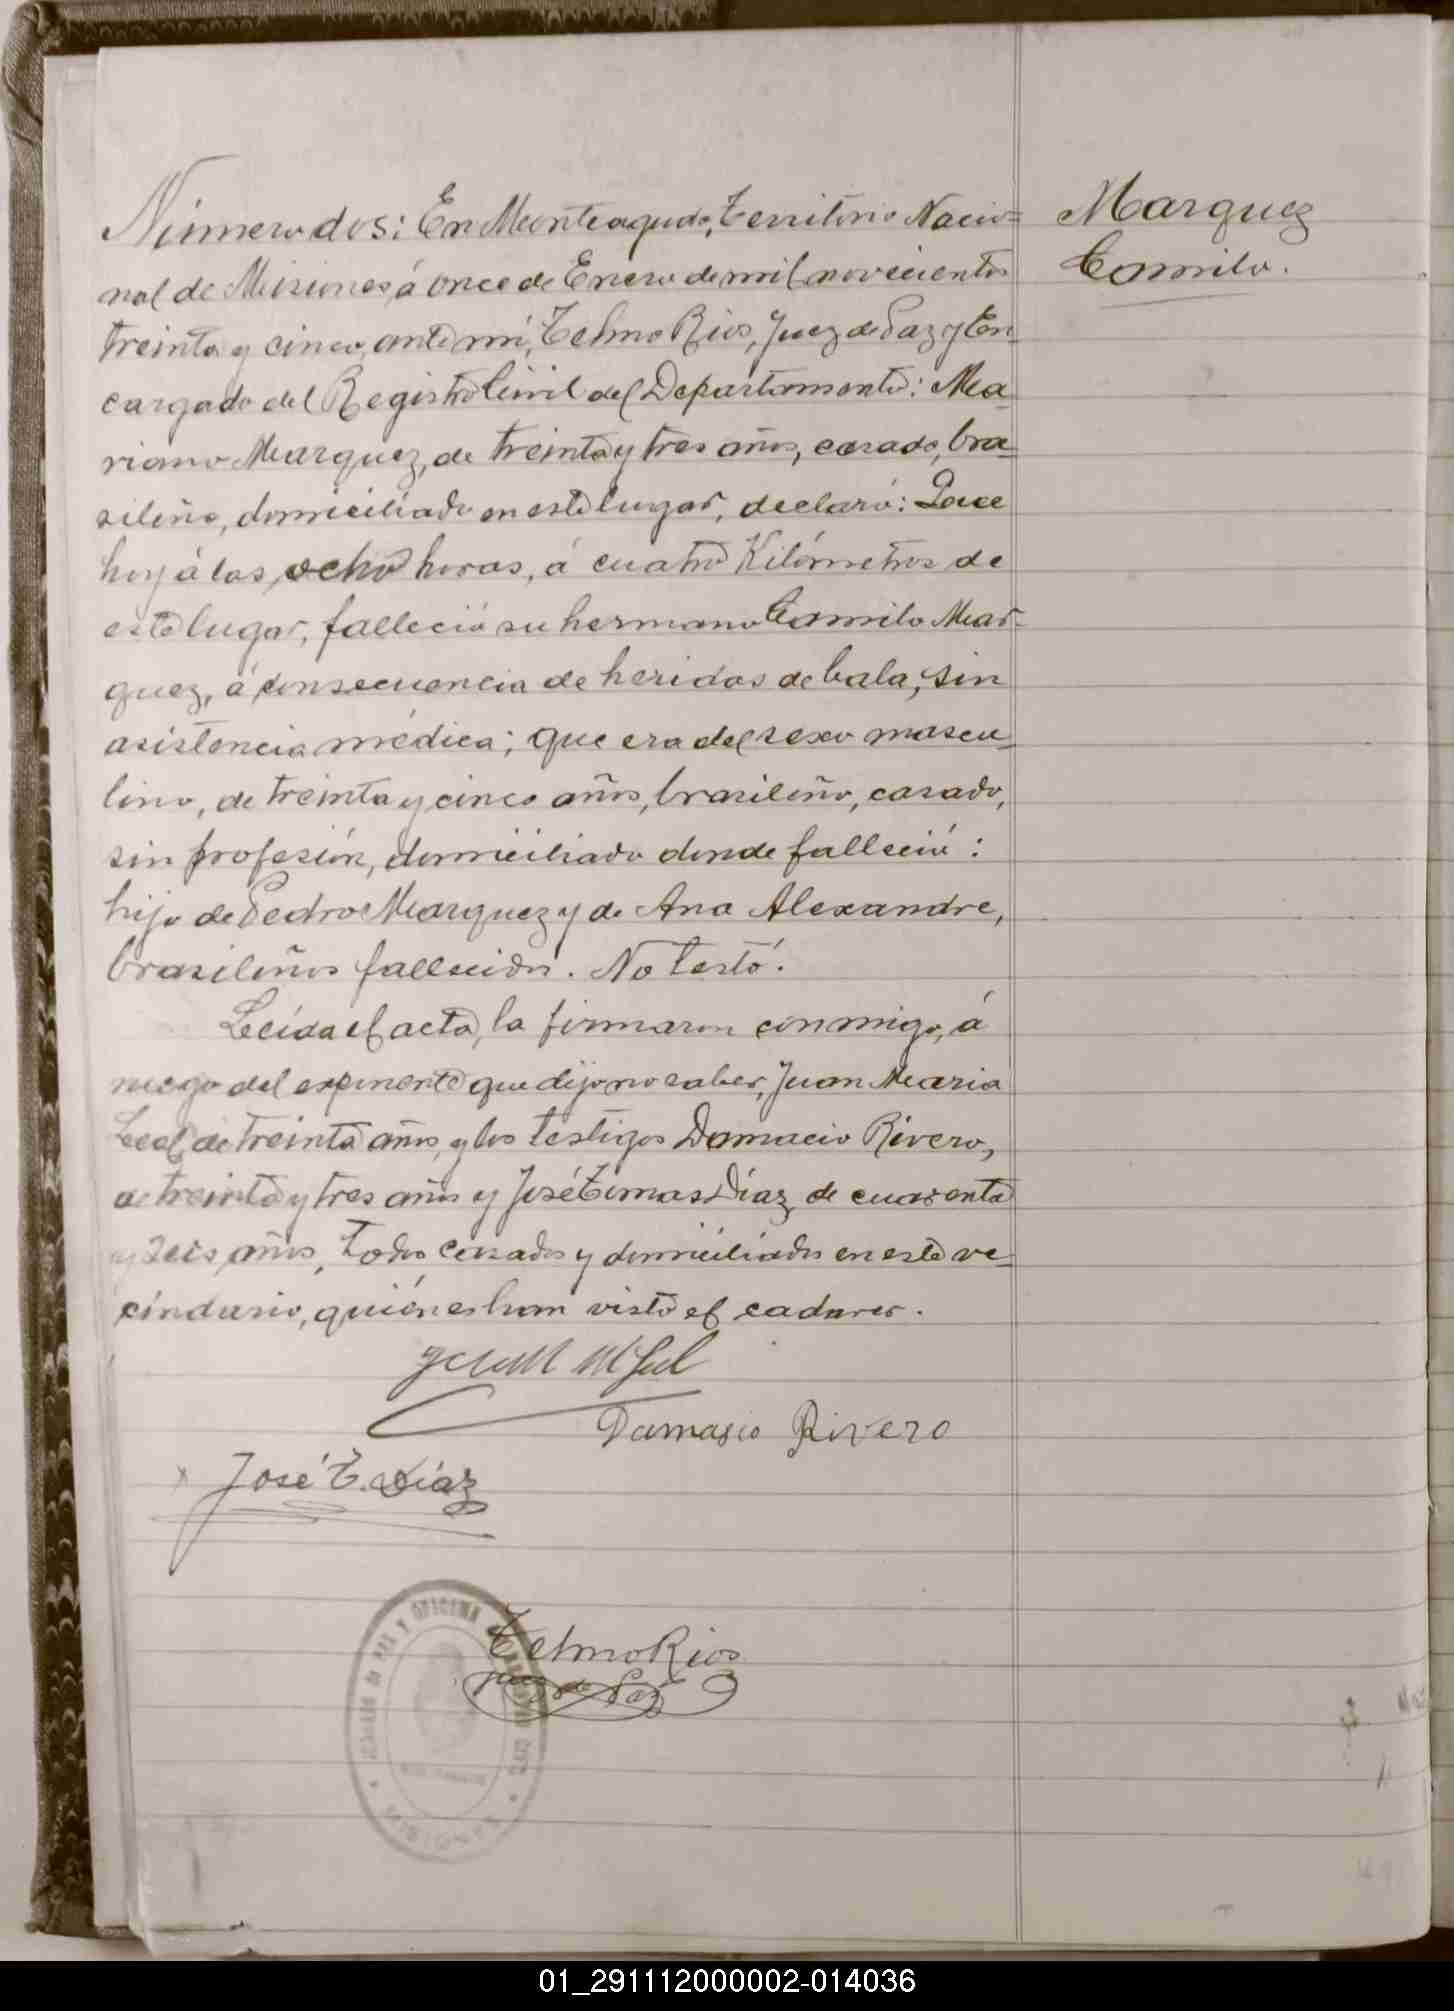 Número dos: En Monteagudo, Territorio Nacio=
nal de Misiones, á once de Enero de mil novecientos
treinta y cinco, ante mí, Telmo Rios, Juez de Paz y En
cargado del Registro Civil del Departamento: Ma
riano Marquez, de treinta y tres años, casado, bra
sileño, domiciliado en este lugar, declaró: Que
hoy á las ocho horas, á cuatro Kilómetros de
este lugar, falleció su hermano Camilo Mar-
quez, á consecuencia de heridas de bala, sin
asistencia médica; que era del sexo mascu
lino, de treinta y cinco años, brasileño, casado,
sin profesión, domiciliado donde falleció:
hijo de Pedro Marquez y de Ana Alexandre,
brasileños fallecidos. No testó.
Leída el acta, la firmaron conmigo, á
ruego del exponente que dijo no saber, Juan Maria
Leal, de treinta años, y los testigos Damacio Rivero,
de treinta y tres años y José Tomas Díaz, de cuarenta
y seis años, todos casados y domiciliados en este ve
cindario, quiénes han visto el cadaver.
Marquez
Camilo.
Damasio Rivero
José T. Díaz
Telmo Rios
Juez de Paz
JUZGADO DE PAZ Y OFICINA
MISIONES
01_291112000002-014036